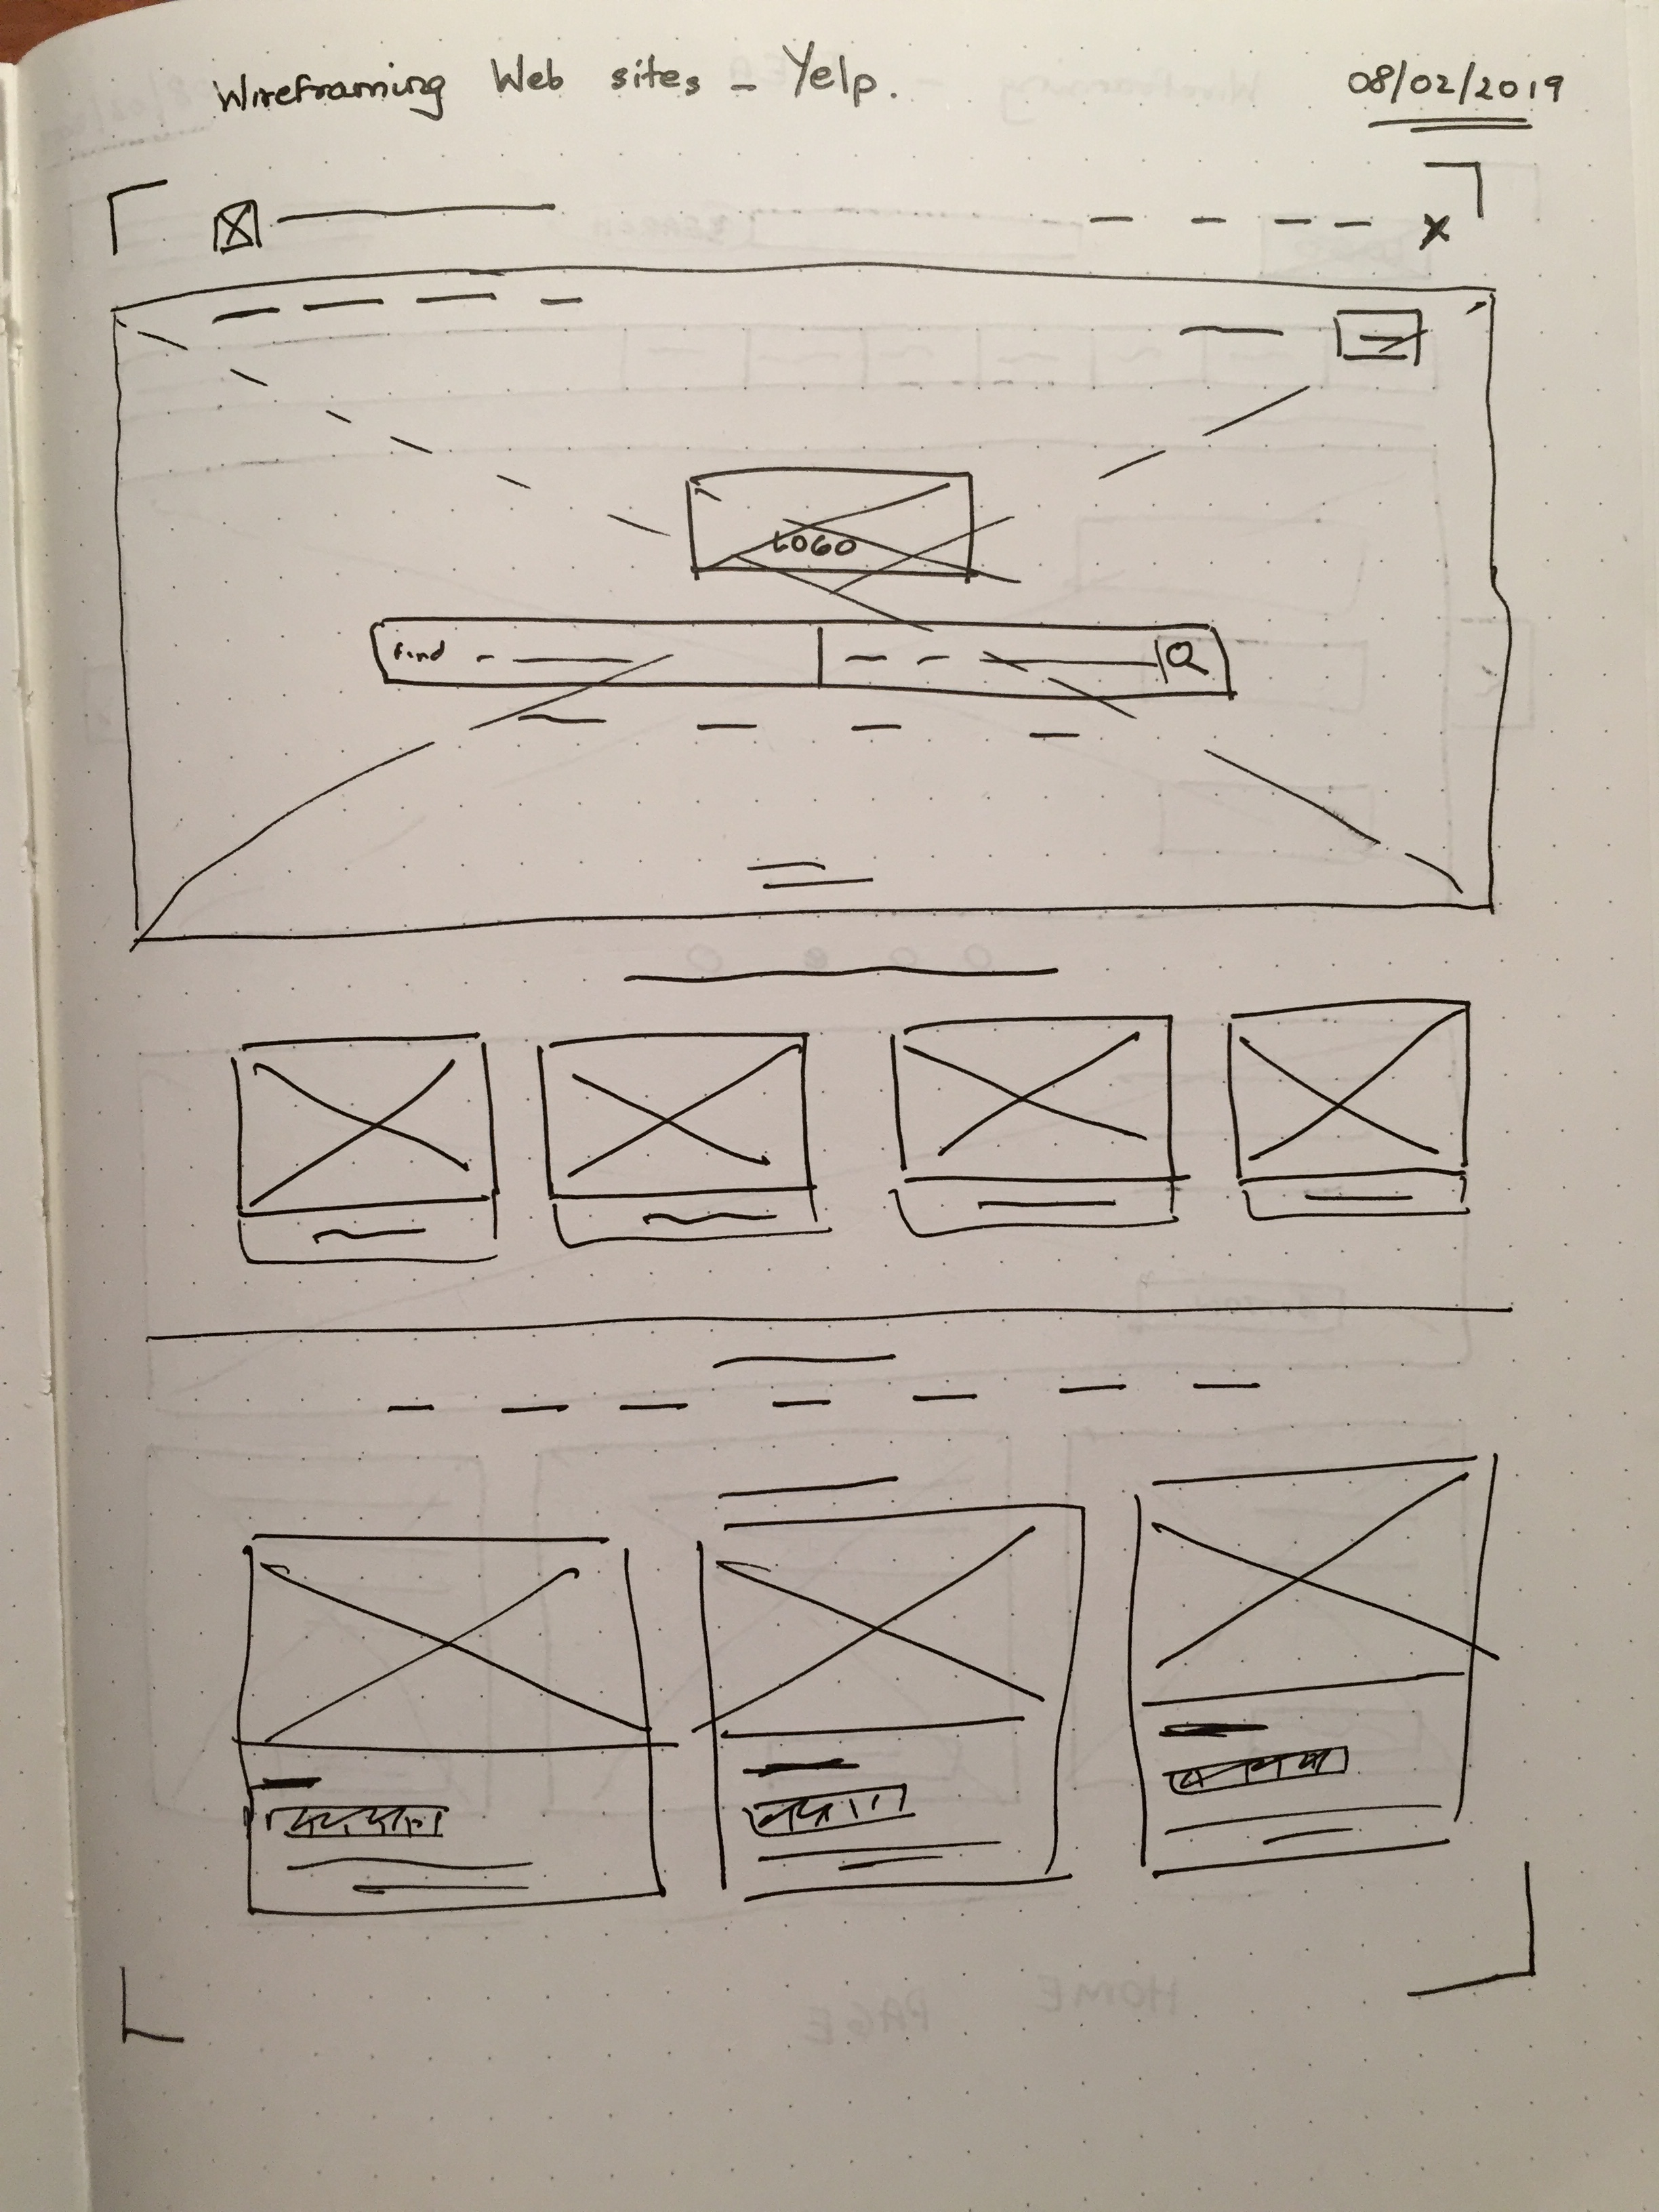 Wireframing Web sites - Yelp.
08/02/2019
LOGO
Find
HOME PAGE